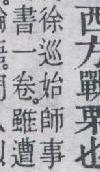 西方戰栗也
徐巡始師事
書一卷雖遭